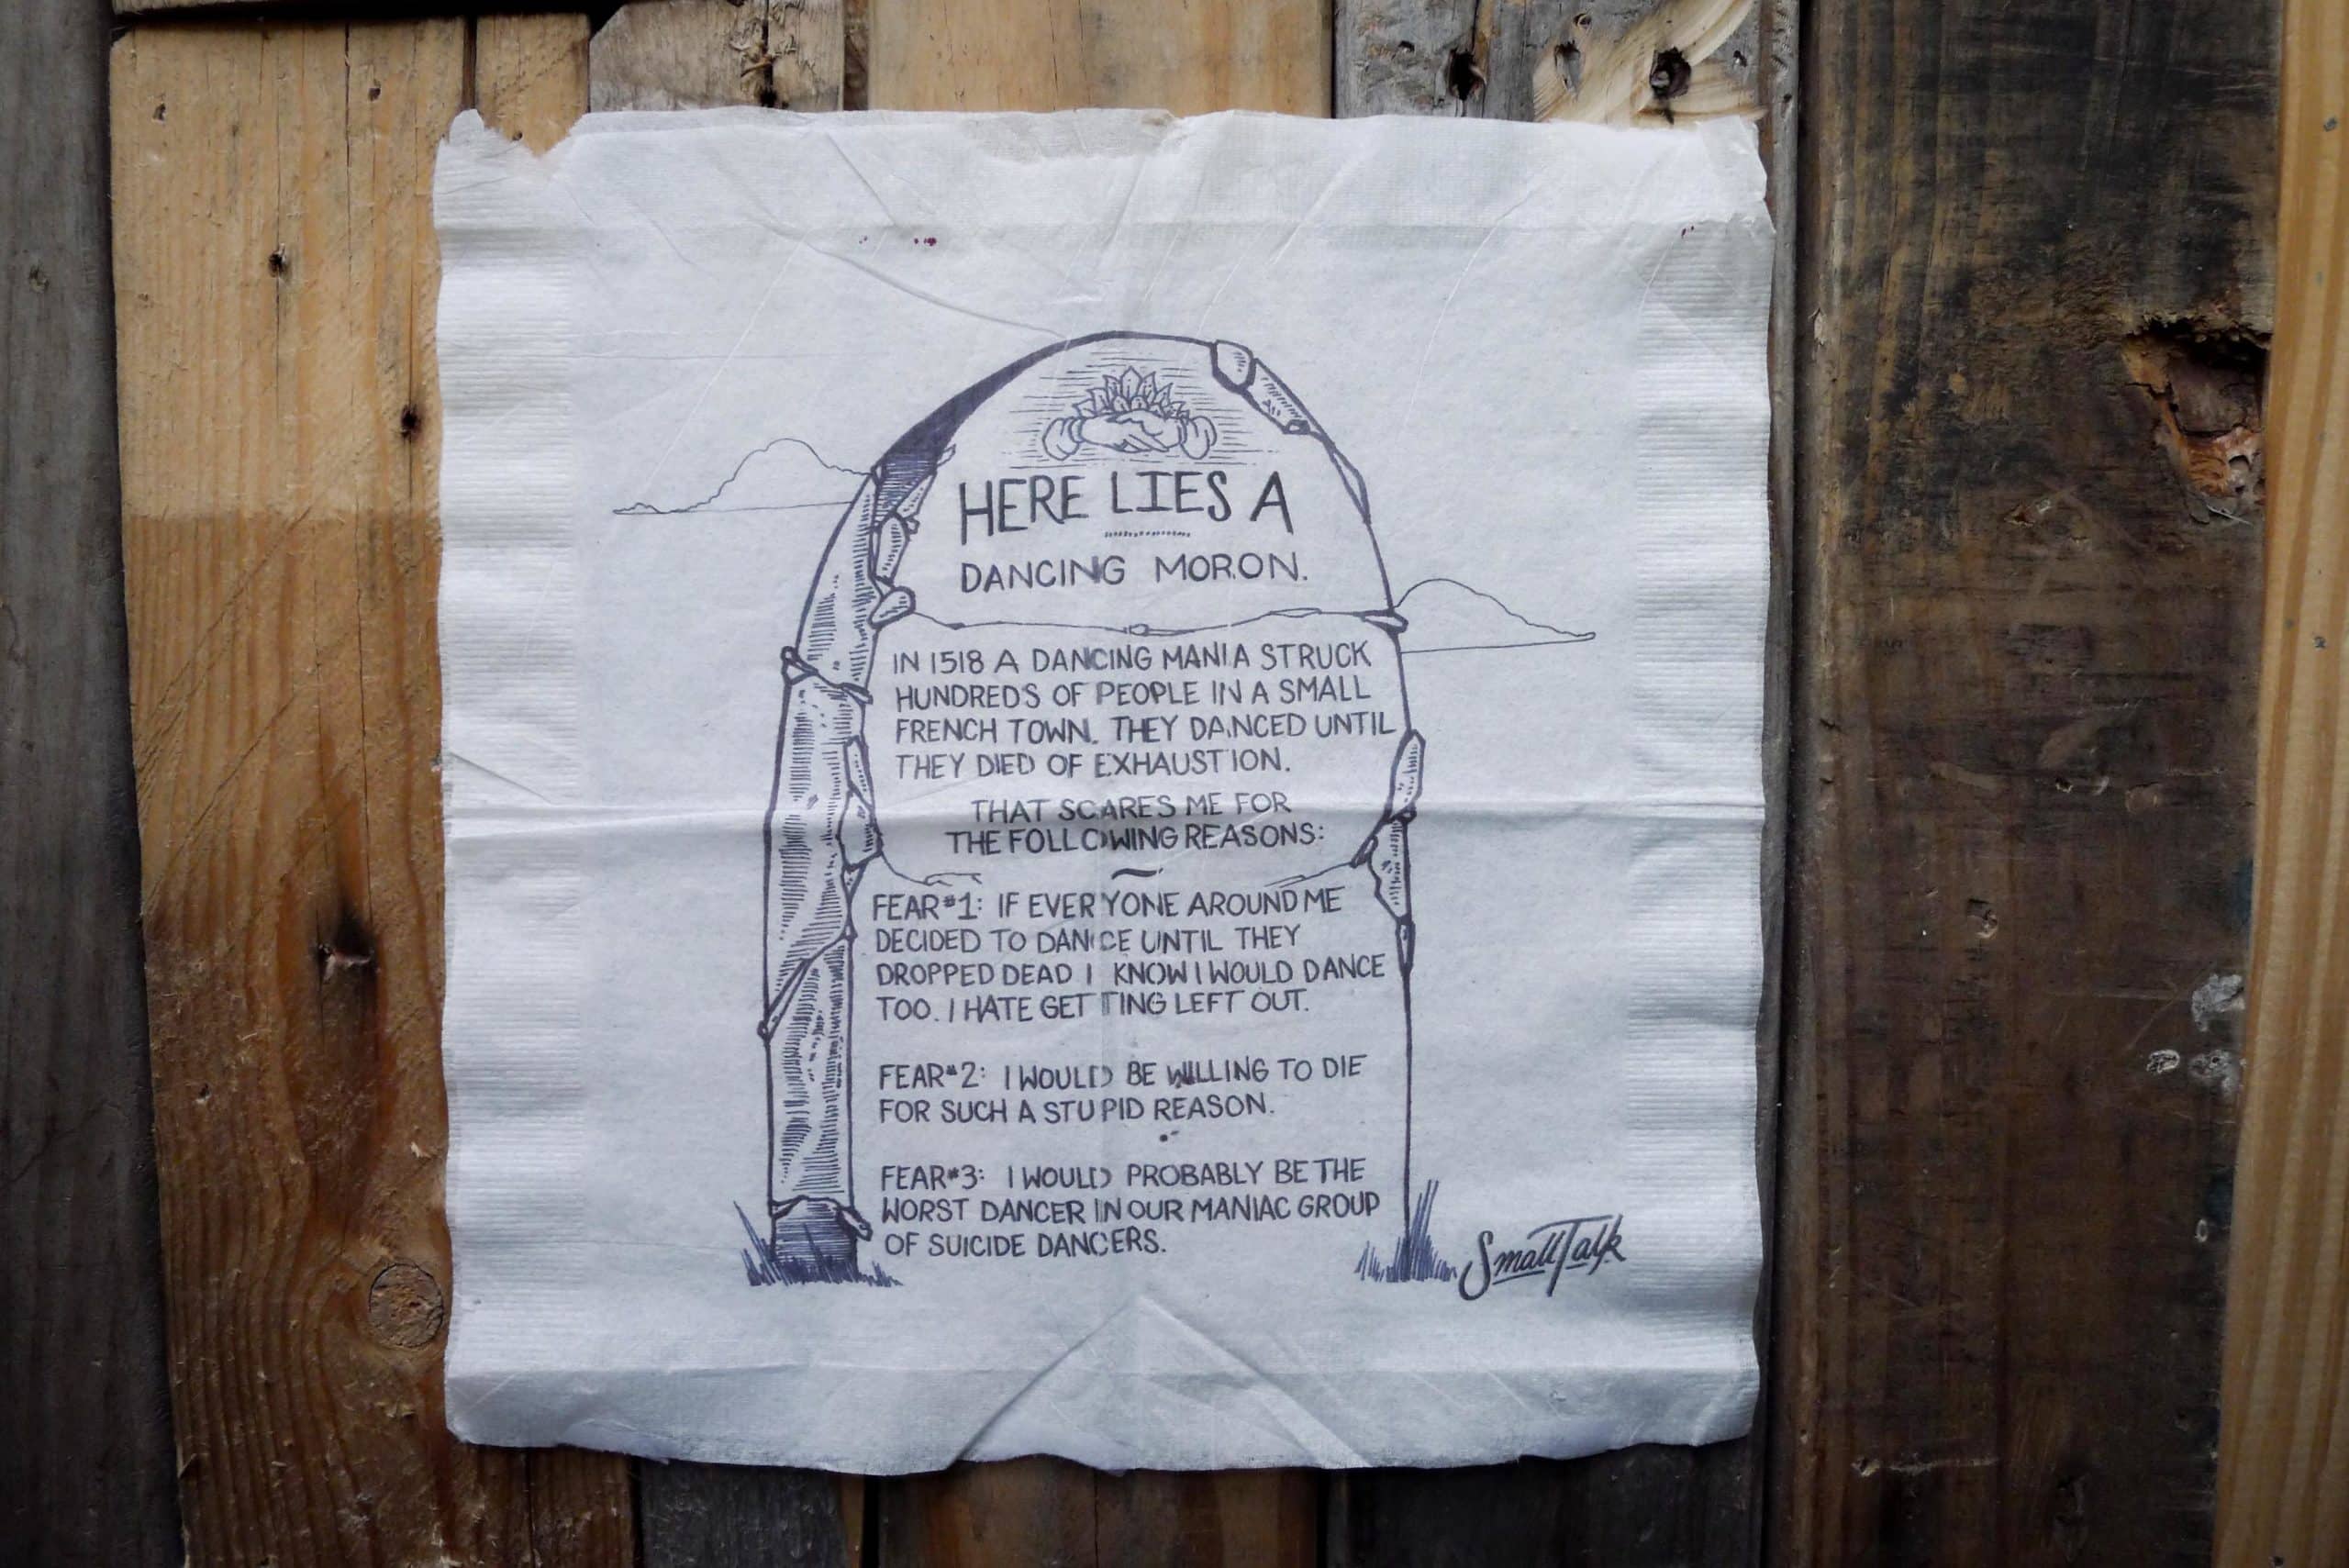 HERE LIES A
DANCING MORON.
IN 1518 A DANCING MANIA STRUCK
HUNDREDS OF PEOPLE IN A SMALL
FRENCH TOWN. THEY DANCED UNTIL
THEY DIED OF EXHAUSTION.
THAT SCARES ME FOR
THE FOLLOWING REASONS:
~
FEAR #1: IF EVERYONE AROUND ME
DECIDED TO DANCE UNTIL THEY
DROPPED DEAD I KNOW I WOULD DANCE
TOO. I HATE GETTING LEFT OUT.
FEAR #2: I WOULD BE WILLING TO DIE
FOR SUCH A STUPID REASON.
FEAR #3: I WOULD PROBABLY BE THE
WORST DANCER IN OUR MANIAC GROUP
OF SUICIDE DANCERS.
SmallTalk